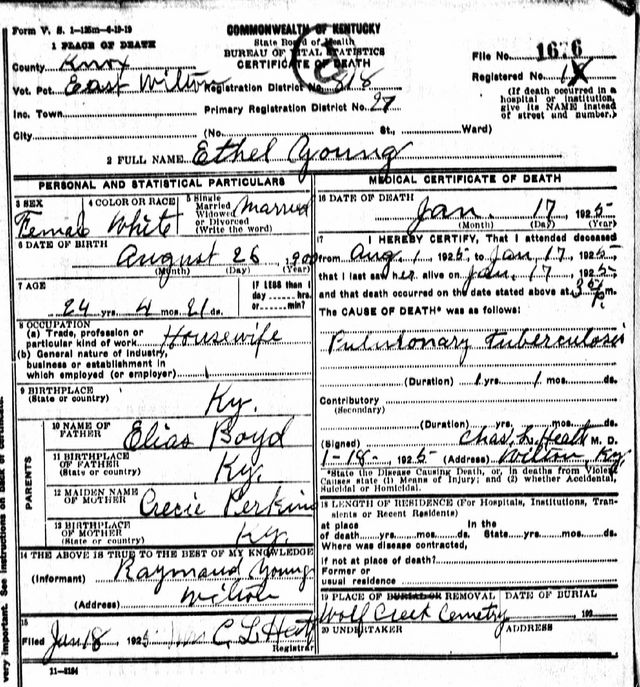 Form V. S. 1-125m-4-19-19
COMMONWEALTH OF KENTUCKY
State Board of Health
BUREAU OF VITAL STATISTICS
CERTIFICATE OF DEATH
1 PLACE OF DEATH
County Knox
Vot. Pct. East Wilton
Registration District No. 818
File No. 1676
Registered No.
Inc. Town
Primary Registration District No. 27
(If death occurred in a hospital or institution, give its NAME instead of street and number.)
City (No. St., Ward)
2 FULL NAME Ethel Young
PERSONAL AND STATISTICAL PARTICULARS
3 SEX Female
4 COLOR OR RACE White
5 Single Married Widowed or Divorced (Write the word) Married
6 DATE OF BIRTH
August 26 1900
(Month) (Day) (Year)
7 AGE
24 yrs. 4 mos. 21 ds.
IF LESS than 1 day hrs. or min?
8 OCCUPATION
(a) Trade, profession or particular kind of work Housewife
(b) General nature of industry, business or establishment in which employed (or employer)
9 BIRTHPLACE
(State or country) Ky.
PARENTS
10 NAME OF FATHER Elias Boyd
11 BIRTHPLACE OF FATHER
(State or country) Ky.
12 MAIDEN NAME OF MOTHER Crecie Perkins
13 BIRTHPLACE OF MOTHER
(State or country) Ky
14 THE ABOVE IS TRUE TO THE BEST OF MY KNOWLEDGE
(Informant) Raymond Young
(Address) Wilton
15
Filed Jan 18, 1925 C L Heath
Registrar
11-3184
MEDICAL CERTIFICATE OF DEATH
16 DATE OF DEATH
Jan. 17 1925
(Month) (Day) (Year)
17 I HEREBY CERTIFY, That I attended deceased
from Aug. 1 1925 to Jan 17, 1925,
that I last saw her alive on Jan. 17 1925
and that death occurred on the date stated above at
The CAUSE OF DEATH* was as follows:
Pulmonary Tuberculosis
(Duration) 1 yrs. 1 mos. ds.
Contributory
(Secondary)
(Duration) yrs. mos. ds.
(Signed) Chas. L. Heath M. D.
1-18-, 1925 (Address) Wilton Ky.
*State the Disease Causing Death, or, in deaths from Violent Causes state (1) Means of Injury; and (2) whether Accidental, Suicidal or Homicidal.
18 LENGTH OF RESIDENCE (For Hospitals, Institutions, Transients or Recent Residents)
at place of death yrs. mos. ds. In the State yrs. mos. ds.
Where was disease contracted,
if not at place of death?
Former or
usual residence
19 PLACE OF BURIAL OR REMOVAL
DATE OF BURIAL
Wolf Creek Cemetry 192
20 UNDERTAKER
ADDRESS
very important. See instructions on back of certificate.